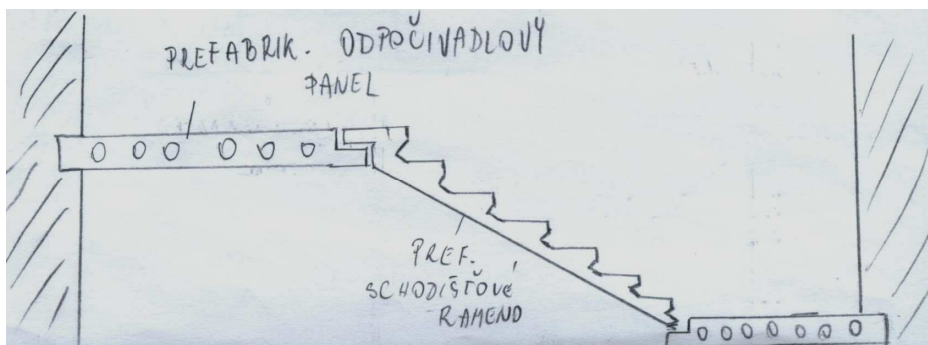 PREFABRIK. ODPOČIVADLOVÝ
PANEL
PREF.
SCHODIŠŤOVÉ
RAMENO